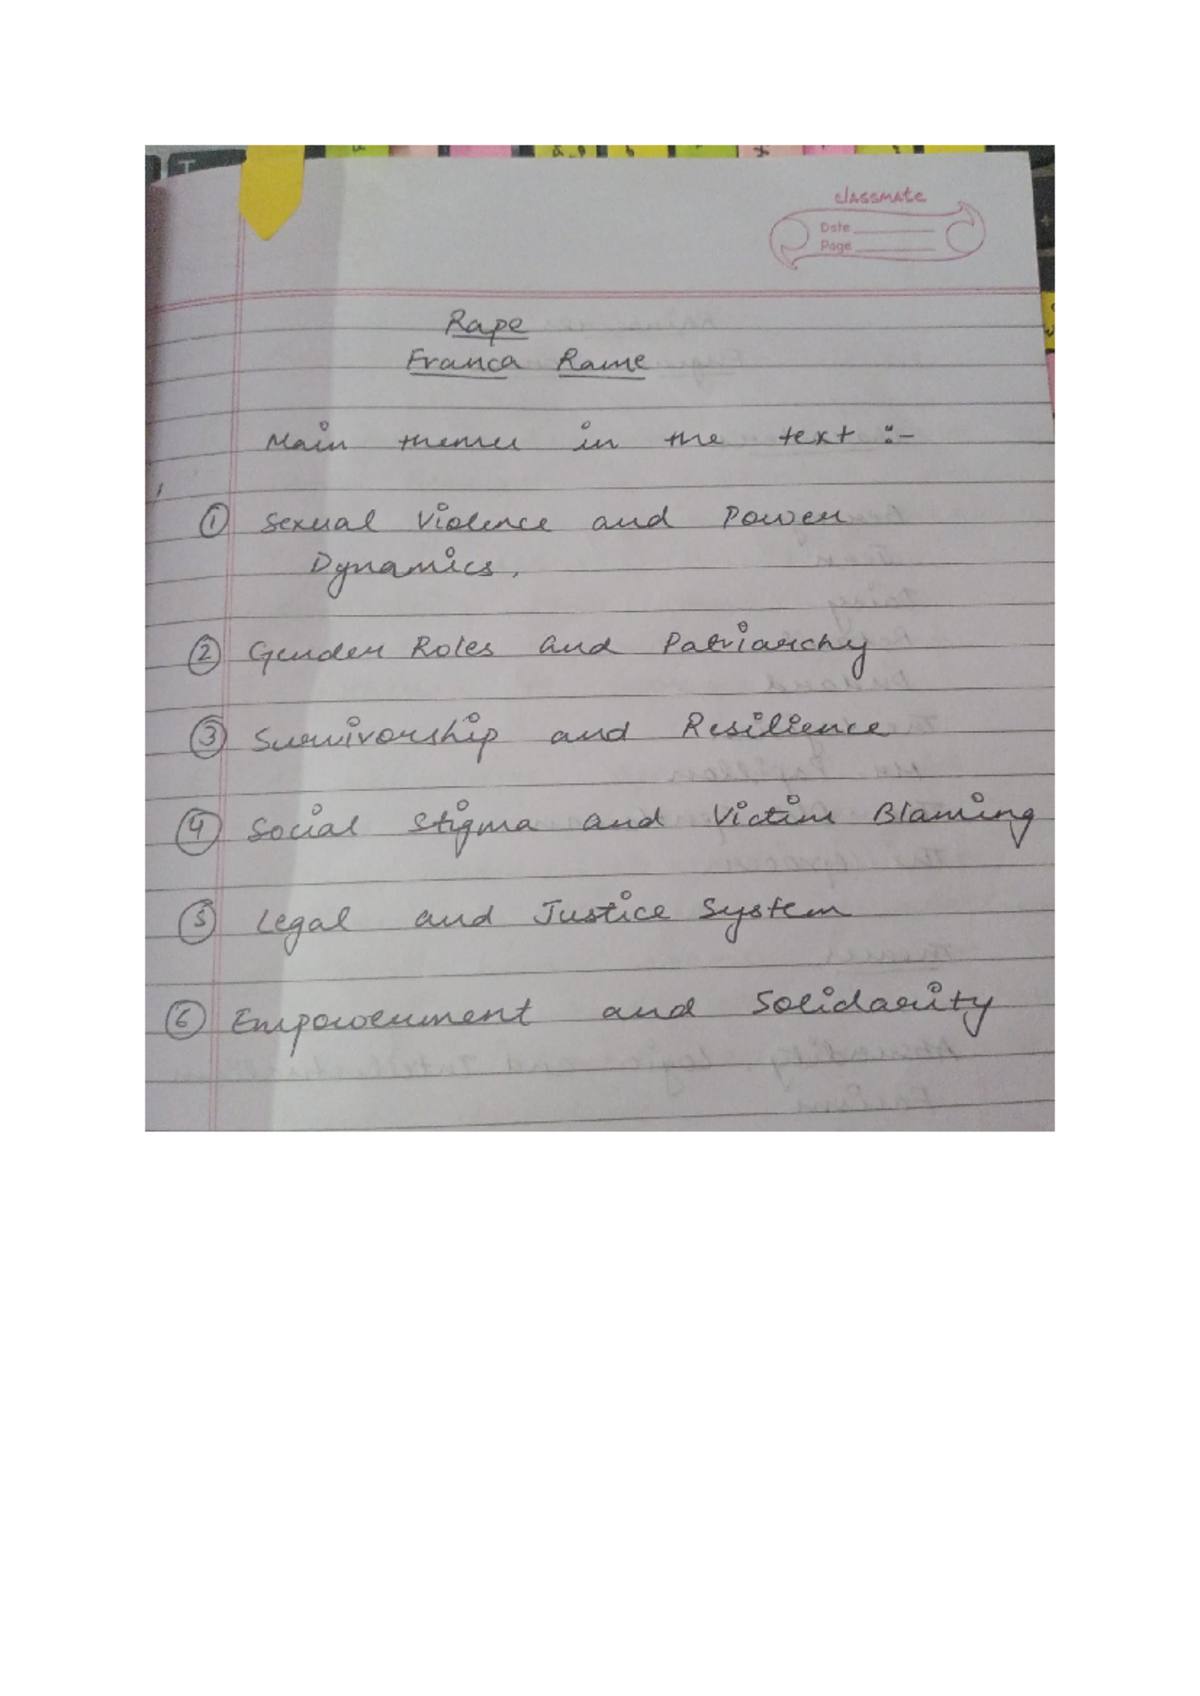 classmate
Date
Page
Rape
Franca Rame
Main themes in the text :-
① Sexual Violence and Power
Dynamics.
② Gender Roles and Patriarchy
③ Survivorship and Resilience
④ Social Stigma and Victim Blaming
⑤ Legal and Justice System
⑥ Empowerment and Solidarity